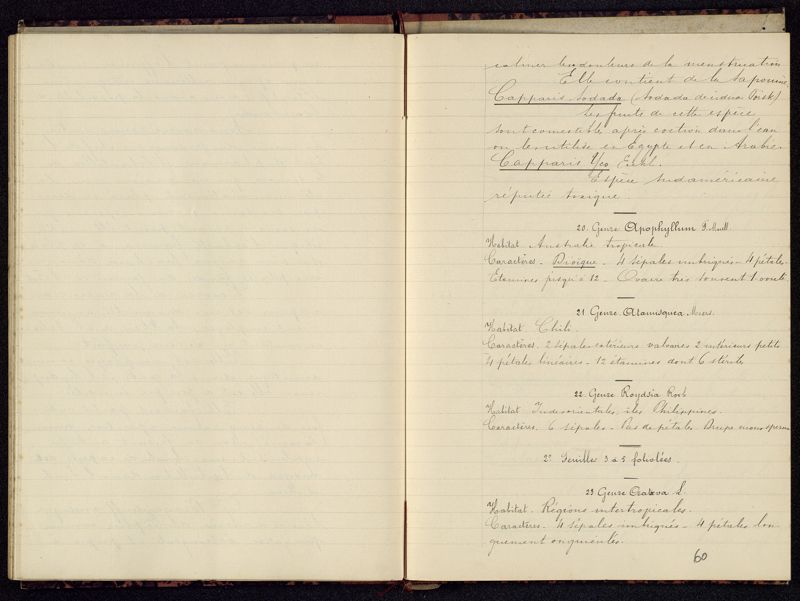 calmer les douleurs de la menstruation
Elle contient de la saponine.
Capparis Sodada (Sodada decidua Forsk)
Les fruits de cette espèce
sont comestibles après coction dans l'eau
on les utilise en Egypte et en Arabie.
Capparis Yco Eichl.
Espèce sudaméricaine
réputée toxique.
20. Genre Apophyllum F. Muell.
Habitat. Australie tropicale.
Caractères - Dioique - 4 sépales imbriqués - 4 pétales -
Etamines jusqu'à 12 - Ovaire très souvent 1 ovulé.
21. Genre Atamisquea Miers.
Habitat Chili.
Caractères. 2 sépales extérieurs valvaires 2 intérieurs petits
4 pétales linéaires - 12 étamines dont 6 stériles
22. Genre Roydsia Roxb
Habitat Indes orientales, îles Philippines.
Caractères. 6 sépales - Pas de pétales. Drupe monosperme
2° Feuilles 3 à 5 foliolées.
23 Genre Crateva L.
Habitat. Régions intertropicales.
Caractères - 4 sépales imbriqués - 4 pétales lon-
guement onguiculés.
60